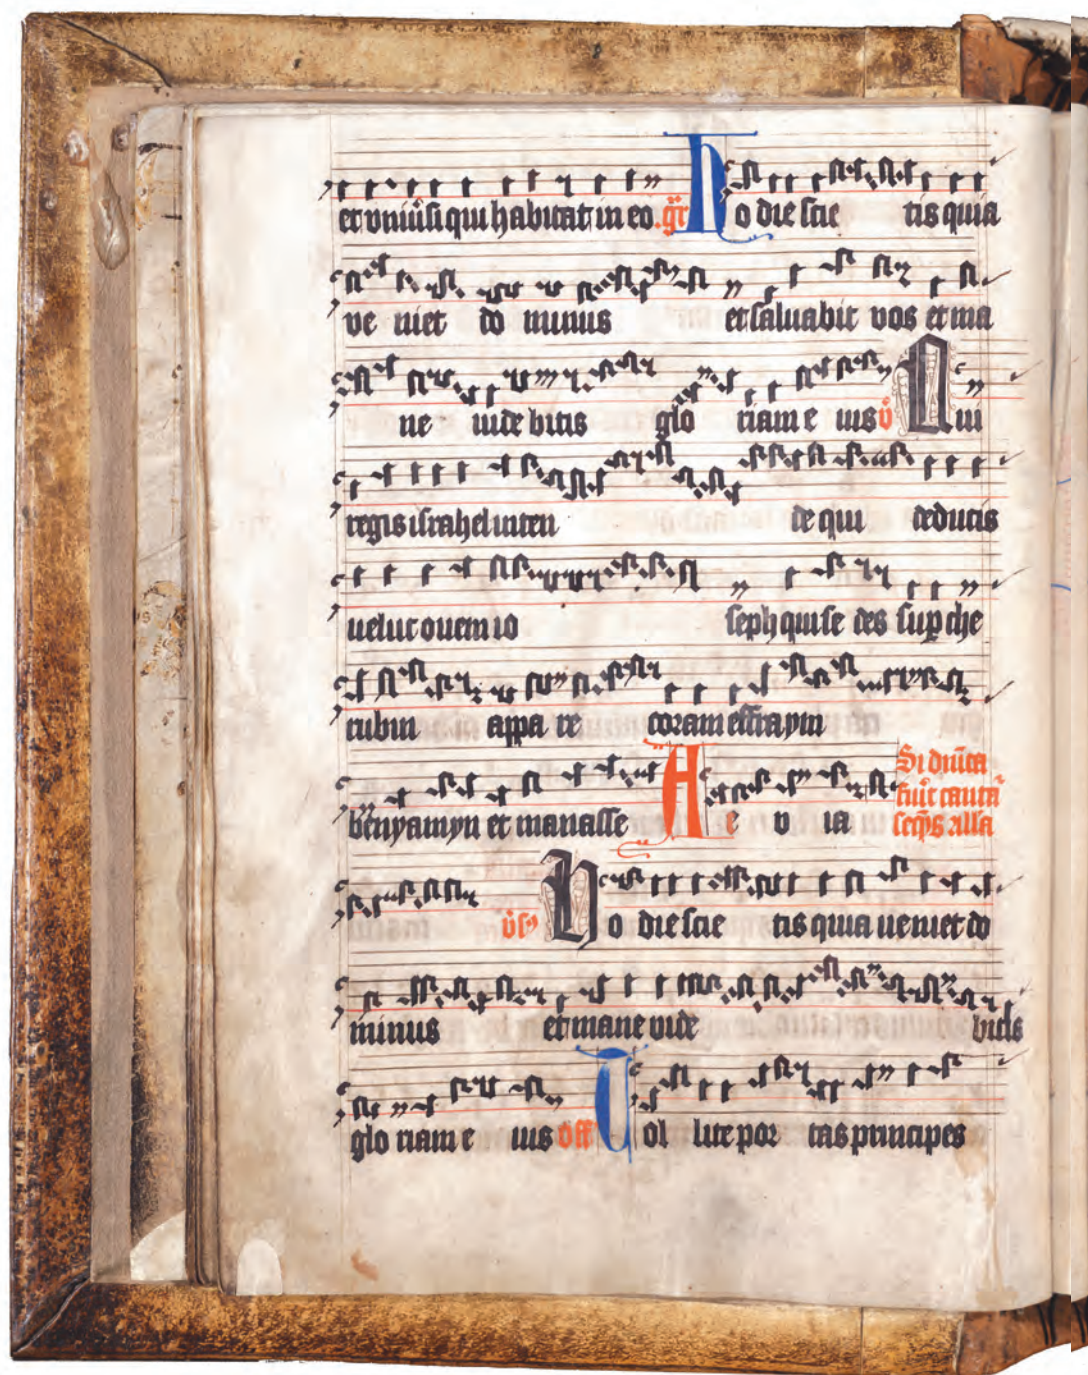 et vniũsi qui habitat in eo. gr̃ Ho die scie tis quia
ve niet do minus et saluabit vos et ma
ne uide bitis glo riam e ius v̊ Qui
regis israhel inten de qui deducis
uelut ouem io seph qui se des sup che
rubin appa re coram effraym
benyamyn et manasse A e v ia Si dñica
fuit cantat̃
seq̃s alla
v̊s Ho die scie tis quia ueniet do
minus et mane vide bitis
glo riam e ius off Tol lite por tas principes